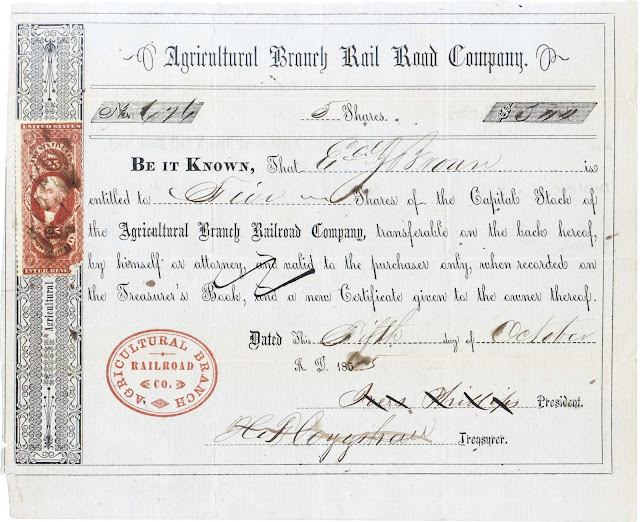 Agricultural Branch Rail Road Company.
No. 676 5 Shares. $500
BE IT KNOWN, That Brown is
entitled to Five Shares of the Capital Stock of
the Agricultural Branch Railroad Company, transferable on the back hereof,
by himself or attorney, and valid to the purchaser only, when recorded on
the Treasurer's Book, and a new Certificate given to the owner thereof.
Dated this Fifth day of October
A. D. 1865
Ives Phillips President.
Treasurer.
AGRICULTURAL BRANCH
RAILROAD
CO.
UNITED STATES
25
25
INTER REVENUE
Agricultural